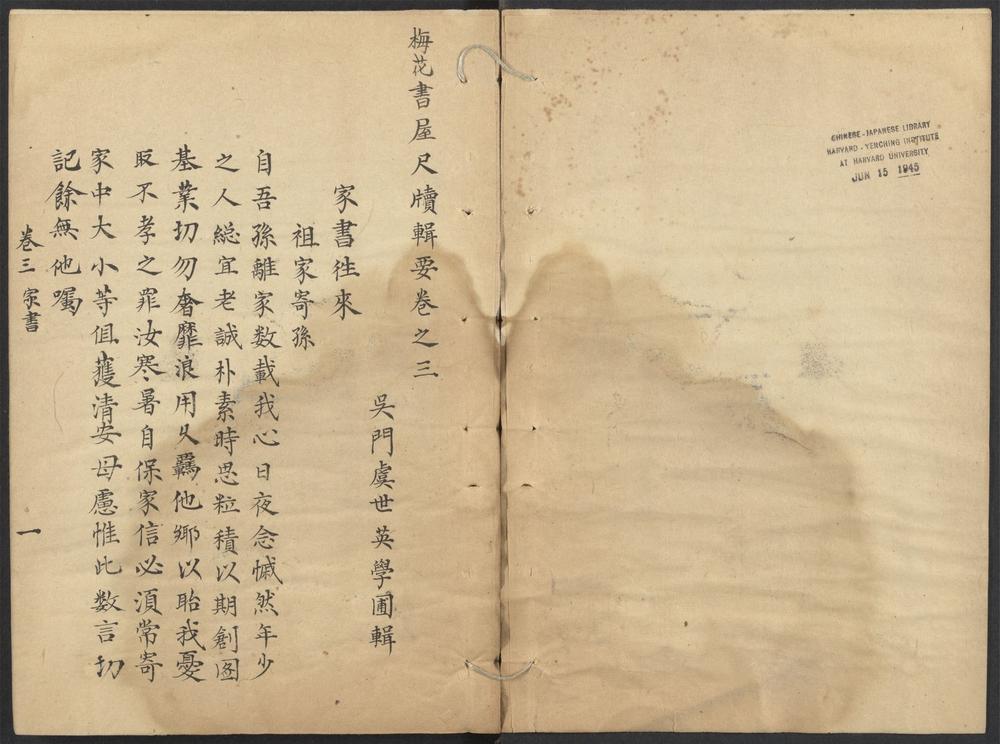 CHINESE-JAPANESE LIBRARY
HARVARD-YENCHING INSTITUTE
AT HARVARD UNIVERSITY
JUN 15 1945
梅花書屋尺牘輯要卷之三
吳門虞世英學圃輯
家書徃來
祖家寄孫
自吾孫離家数載我心日夜念慽然年少
之人縂宜老誠朴素時思粒積以期創圖
基業切勿奢靡浪用久羈他鄉以貽我憂
取不孝之罪汝寒暑自保家信必須常寄
家中大小等俱獲清安毋慮惟此数言切
記餘無他嘱
卷三 家書 一